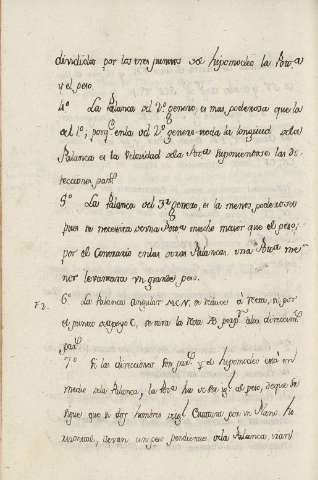 divididas por los tres puntos de hipomoclio la Pot.ª
y el peso.
4º La Palanca del 2º genero es mas poderosa que la
del 1º; porq. en la del 2º genero toda la longitud de la
Palanca es la Velocidad de la Pot.ª suponiendose las di-
recciones par.s
5º La Palanca del 3.er genero, es la menos poderosa
pues se necesita una Pot.ª mucho maior que el peso;
por el Contrario en las otras Palancas una Pot.ª me-
nor levantara un grande peso.
6º La Palanca angular M.C.N. se reduce á recta, si por
el punto de apoyo C, se tira la recta AB
par.s
7º Si las direcciones son par.s y el hipomoclio está en
medio de la Palanca, la Pot.ª ha de ser igl. al peso, de que se
sigue que si dos hombres de igl. Estatura por un Plano ho-
rizontal, llevan un peso pendiente de la Palanca, iran